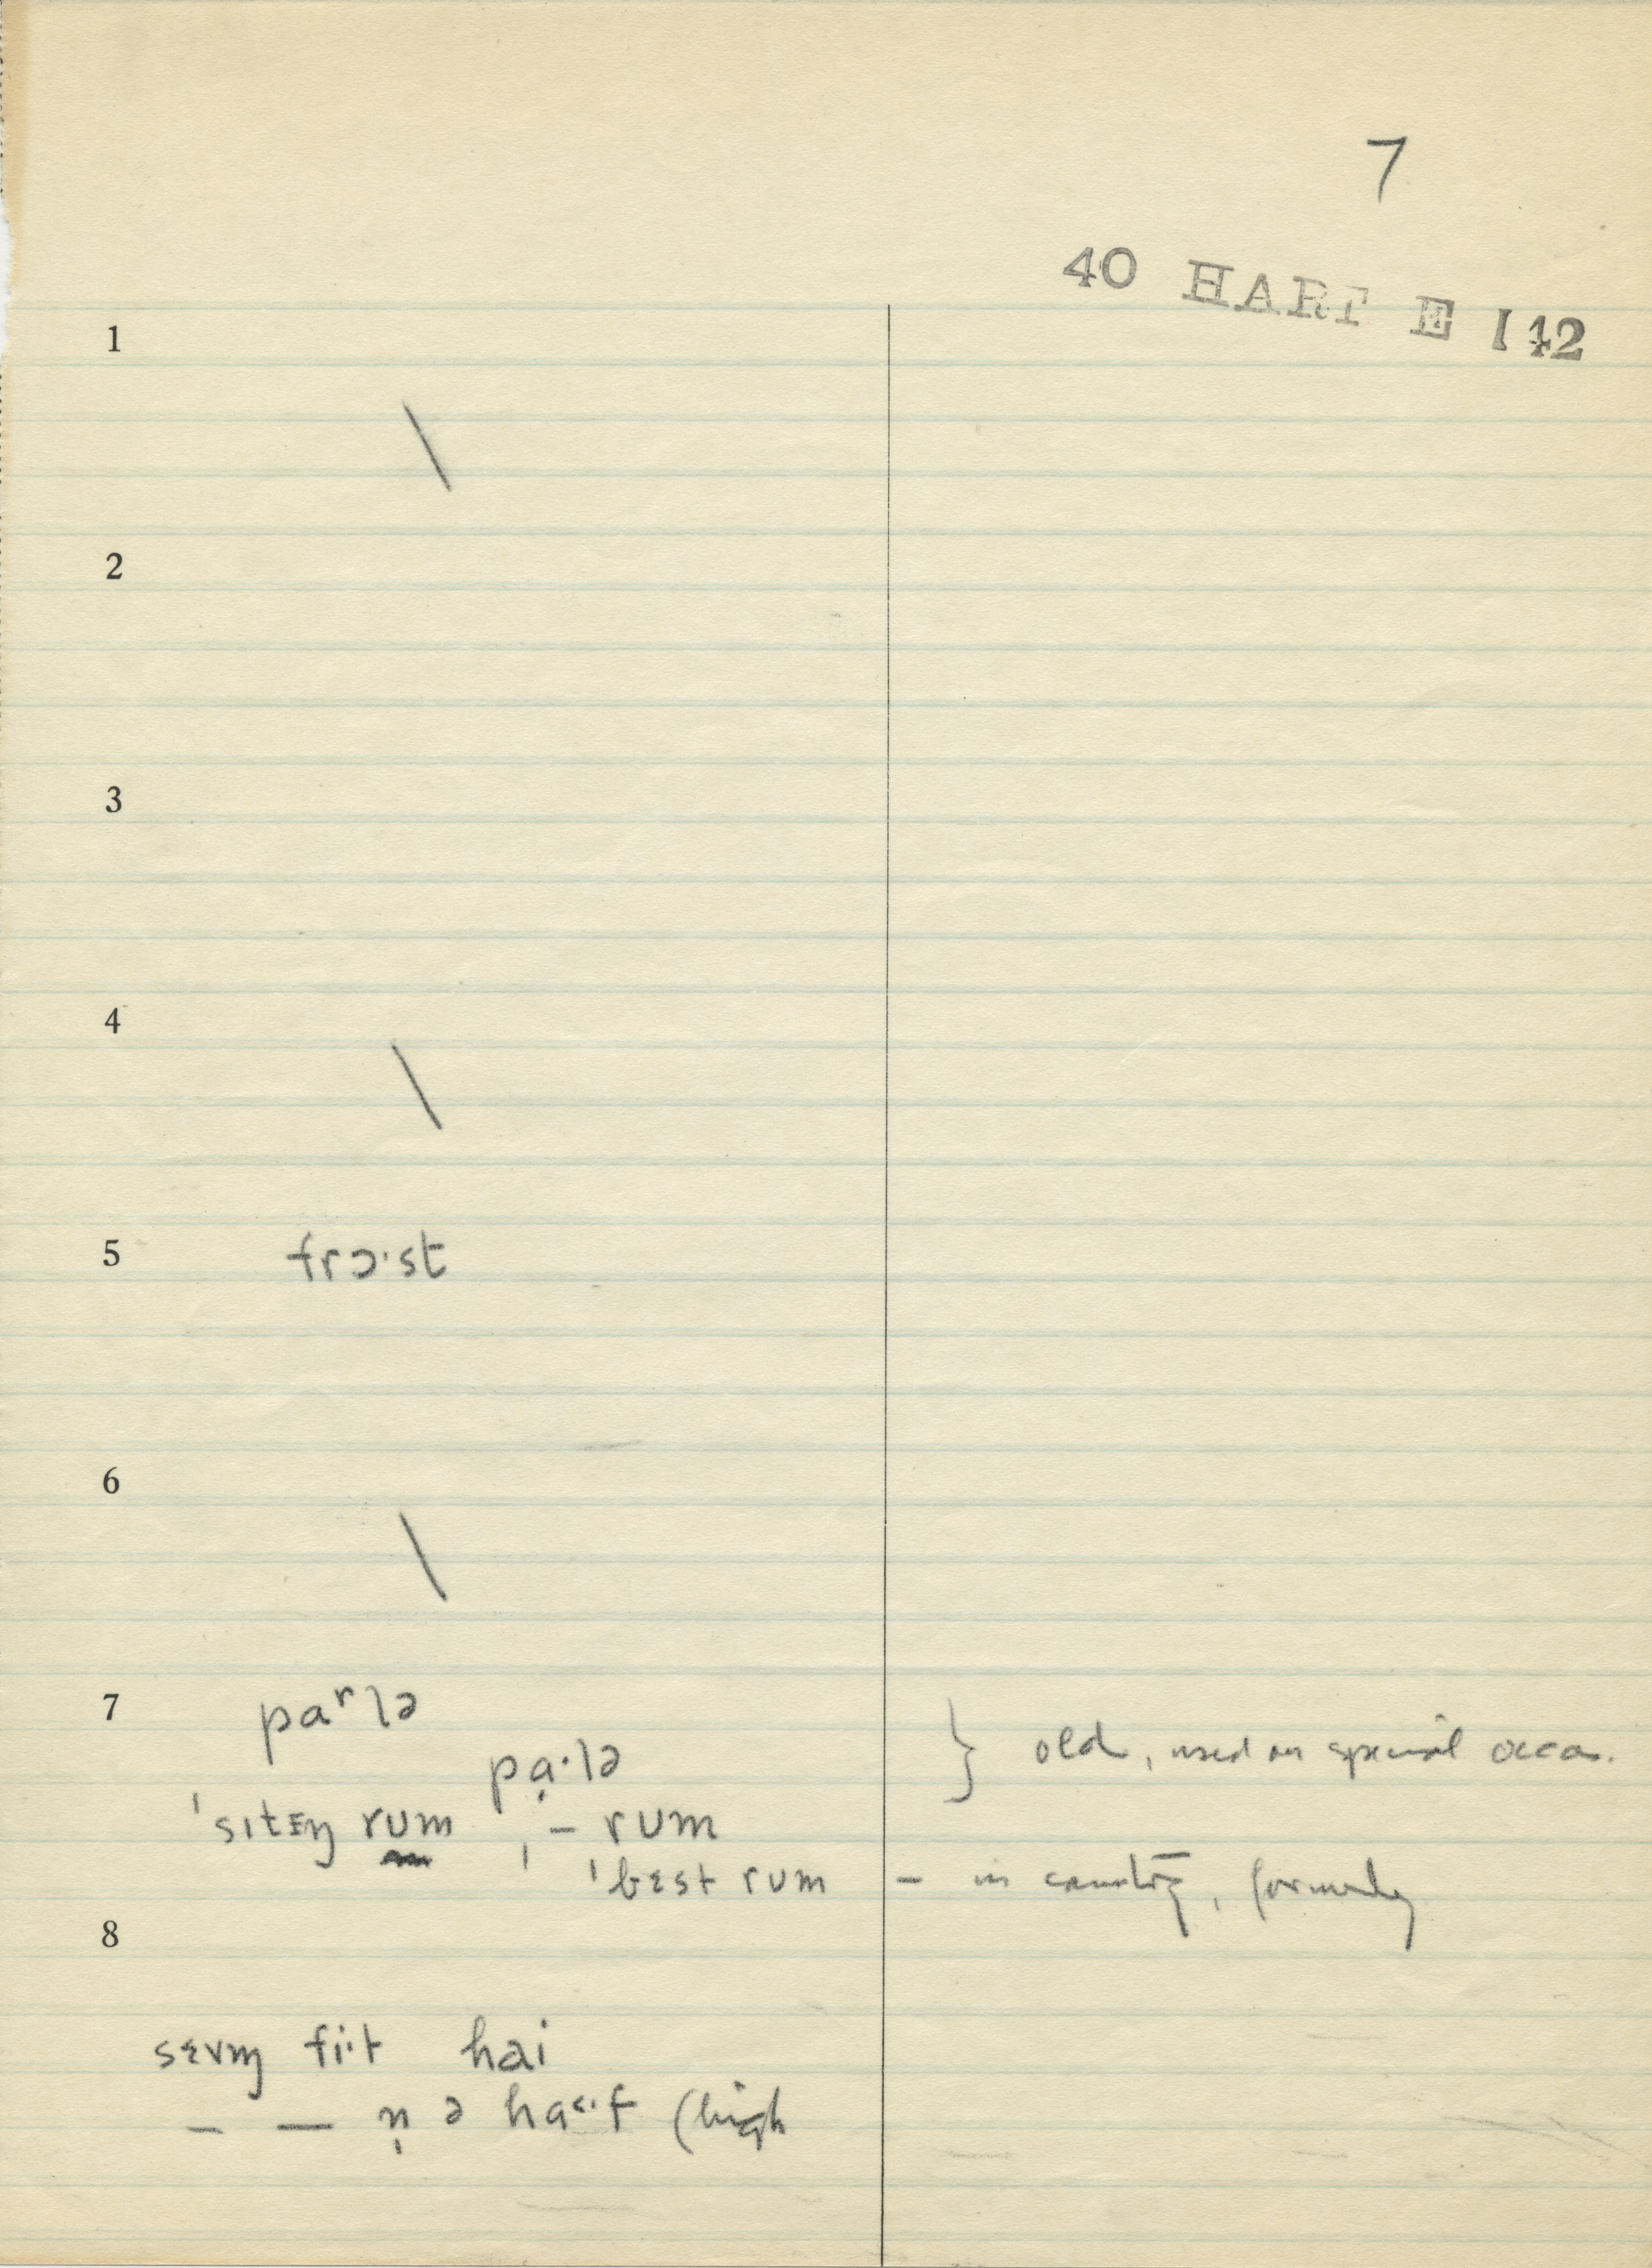 7
40 HART E 142
1
\
2
3
4
\
5 frɔ·st
6
\
7 paʳlə
pạ·lə } old, used on special occas.
ˈsɪtɪŋ rum ˌ– rum
ˈbɛst rum – in country, formerly
8
sɛvm̩ fi·t hai
– — n̩ ə ha˂·f (high